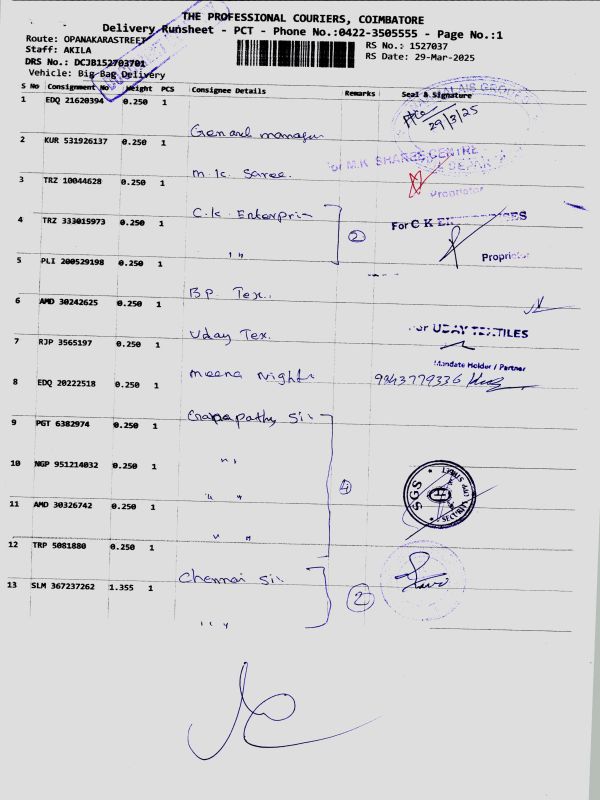 THE PROFESSIONAL COURIERS, COIMBATORE
Delivery Runsheet - PCT - Phone No.:0422-3505555 - Page No.:1
Route: OPANAKARASTREET
Staff: AKILA
DRS No.: DCJB152703701
Vehicle: Big Bag Delivery
RS No.: 1527037
RS Date: 29-Mar-2025
S No Consignment No Weight PCS Consignee Details Remarks Seal & Signature
1 EDQ 21620394 0.250 1
29/3/25
General manager
2 KUR 531926137 0.250 1
For M.K SHAREE CENTRE
m.k. Saree.
Proprietor
3 TRZ 10044628 0.250 1
C.k. Enterpri
4 TRZ 333015973 0.250 1
2
For C K
" "
Proprietor
5 PLI 200529198 0.250 1
B.P. Tex.
6 AMD 30242625 0.250 1
Uday Tex.
For UDAY TEXTILES
7 RJP 3565197 0.250 1
Mandate Holder / Partner
meena
8 EDQ 20222518 0.250 1
9343779336
9 PGT 6382974 0.250 1
Ganapathy Sil
10 NGP 951214032 0.250 1
" "
4
SGS
11 AMD 30326742 0.250 1
" "
12 TRP 5081880 0.250 1
" "
13 SLM 367237262 1.355 1
Chennai Sil
2
" "